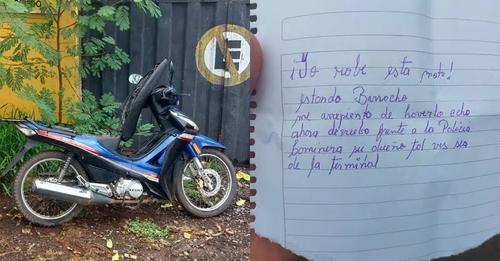 E
¡Yo robe esta moto!
estando Borracho
me arrepiento de hoverlo echo
ahora debuelto frente a la Policia
Caminera su dueño tal vis sea
de la terminal